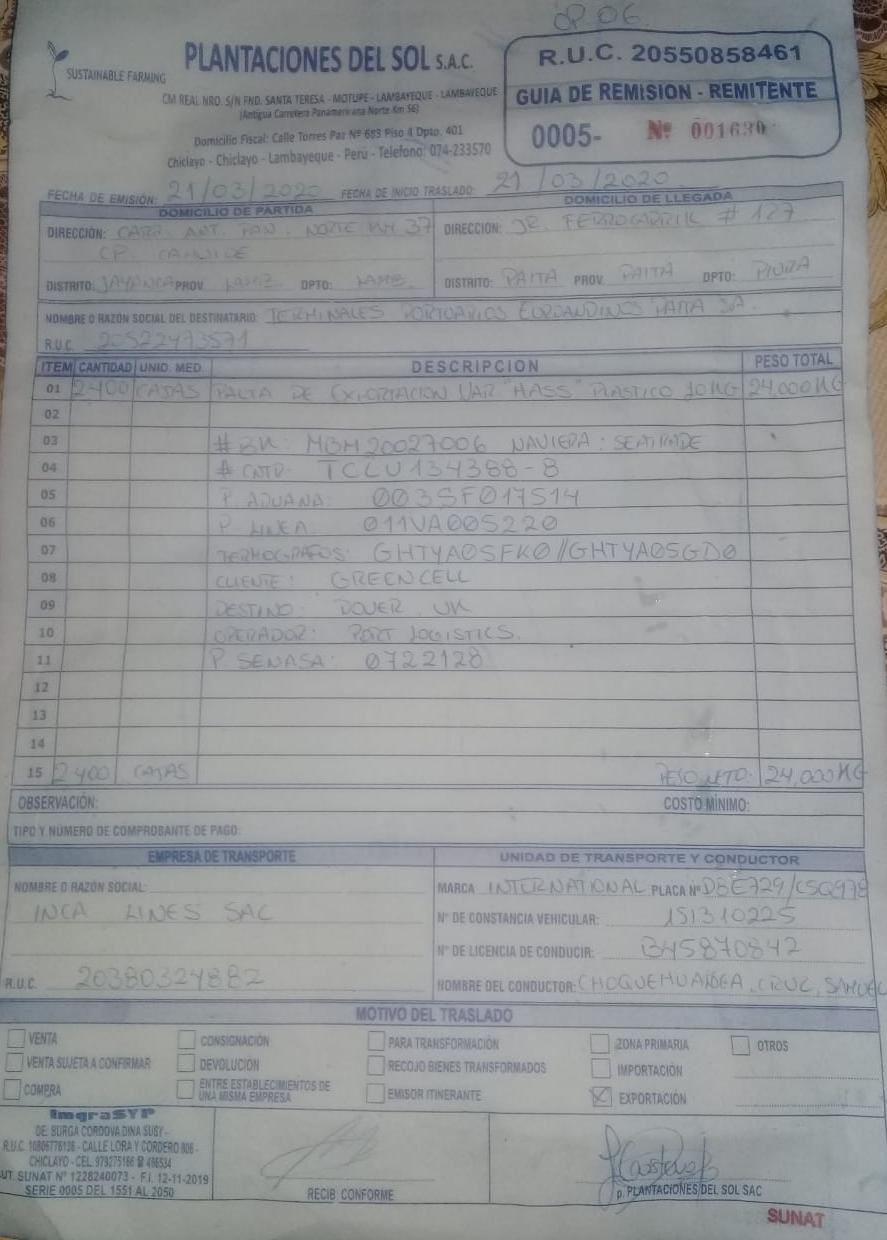 OP. 06
SUSTAINABLE FARMING
PLANTACIONES DEL SOL S.A.C.
CM REAL NRO. S/N FND. SANTA TERESA - MOTUPE - LAMBAYEQUE - LAMBAYEQUE
(Antigua Carretera Panamericana Norte Km 56)
Domicilio Fiscal: Calle Torres Paz Nº 683 Piso 4 Dpto. 401
Chiclayo - Chiclayo - Lambayeque - Perú - Telefono: 074-233570
R.U.C. 20550858461
GUIA DE REMISION - REMITENTE
0005- Nº 001630
FECHA DE EMISIÓN: 21/03/2020 FECHA DE INICIO TRASLADO: 21/03/2020
DOMICILIO DE PARTIDA DOMICILIO DE LLEGADA
DIRECCIÓN: CARR. ANT. PAN. NORTE KM 37 DIRECCIÓN: JR. FERROCARRIL # 127
CP.
DISTRITO: JAYANCA PROV. LAMB. DPTO: LAMB. DISTRITO: PAITA PROV. PAITA DPTO: PIURA
NOMBRE O RAZÓN SOCIAL DEL DESTINATARIO: TERMINALES PORTUARIOS EUROANDINOS PAITA SA.
R.U.C. 20522473571
ITEM CANTIDAD UNID. MED. DESCRIPCION PESO TOTAL
01 2400 CAJAS PALTA DE EXPORTACION VAR "HASS" PLASTICO 10KG 24,000KG
02
03 # BK: MBM20027006 NAVIERA: SEATRADE
04 # CNTD: TCLU134388-8
05 P. ADUANA: 003SF017514
06 P. LINEA 011VA005220
07 TERMOGRAFOS: GHTYA05FK0//GHTYA05GD0
08 CLIENTE: GREENCELL
09 DESTINO: DOVER, UK
10 OPERADOR: PORT LOGISTICS.
11 P. SENASA: 0722128
12
13
14
15 2400 CAJAS PESO NETO: 24,000KG
OBSERVACIÓN: COSTO MÍNIMO:
TIPO Y NÚMERO DE COMPROBANTE DE PAGO:
EMPRESA DE TRANSPORTE UNIDAD DE TRANSPORTE Y CONDUCTOR
NOMBRE O RAZÓN SOCIAL: MARCA INTERNATIONAL PLACA Nº D8E729/C5Q978
INCA LINES SAC Nº DE CONSTANCIA VEHICULAR: 151310225
Nº DE LICENCIA DE CONDUCIR: B45870842
R.U.C. 20380324882 NOMBRE DEL CONDUCTOR: CHOQUEHUANCA, CRUZ, SAMUEL
MOTIVO DEL TRASLADO
VENTA CONSIGNACIÓN PARA TRANSFORMACIÓN ZONA PRIMARIA OTROS
VENTA SUJETA A CONFIRMAR DEVOLUCIÓN RECOJO BIENES TRANSFORMADOS IMPORTACIÓN
COMPRA ENTRE ESTABLECIMIENTOS DE UNA MISMA EMPRESA EMISOR ITINERANTE EXPORTACIÓN
ImgraSYP
DE: BURGA CORDOVA DINA SUSY -
R.U.C. 10806776136 - CALLE LORA Y CORDERO 806 -
CHICLAYO - CEL. 979275166 ☎ 486534
AUT. SUNAT Nº 1228240073 - F.I. 12-11-2019
SERIE 0005 DEL 1551 AL 2050
RECIBI CONFORME
p. PLANTACIONES DEL SOL SAC
SUNAT